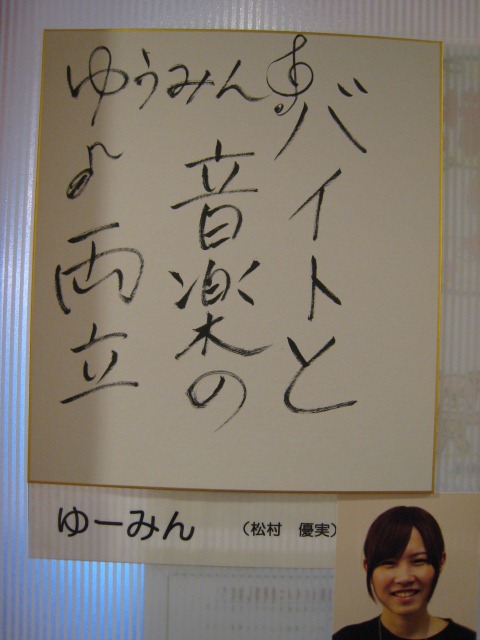 ゆうみん
バイトと
音楽の
両立
ゆーみん (松村 優実)